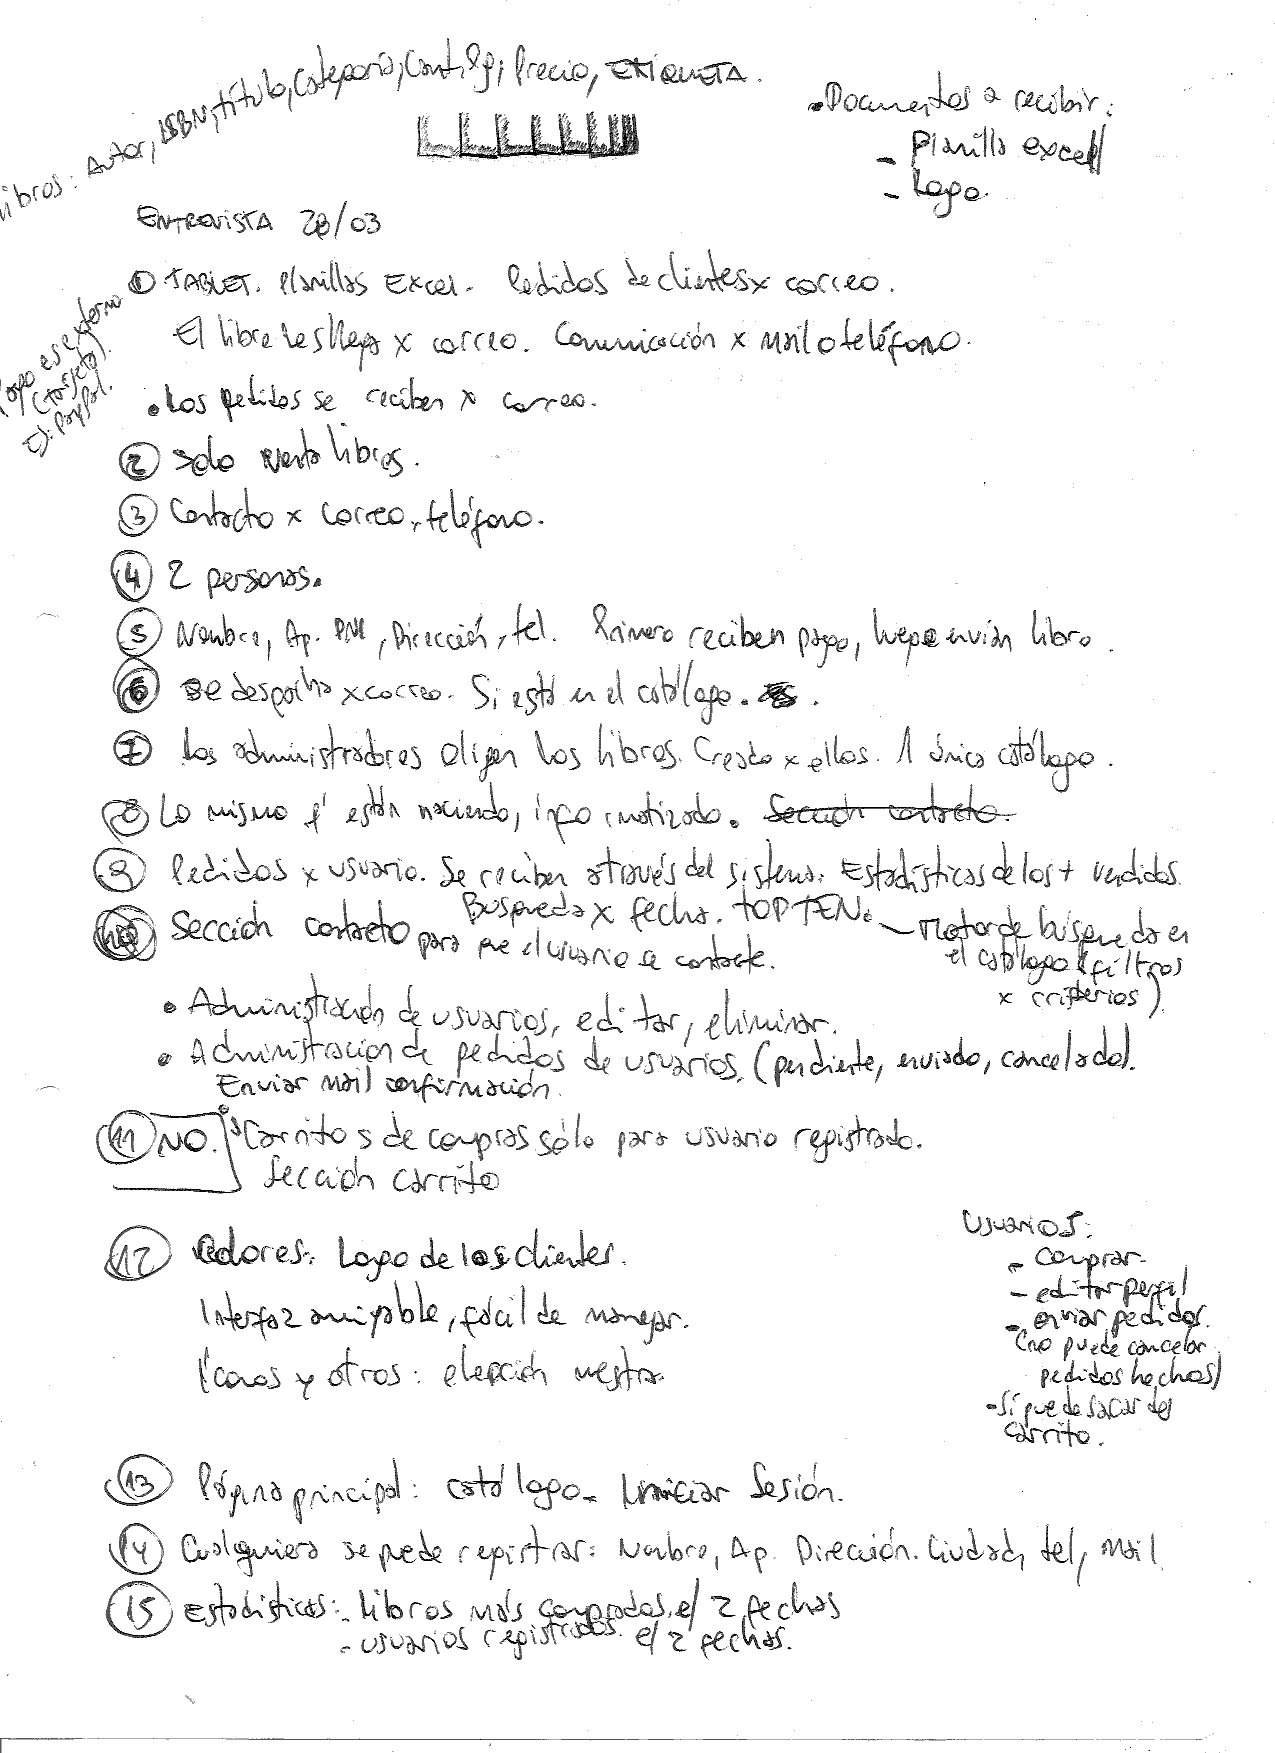 Libros: Autor, ISBN, título, Categoría, Cant. pág, Precio, ETIQUETA.
• Documentos a recibir:
- Planilla excell
- Logo.
ENTREVISTA 28/03
① TABLET. Planillas Excel. Pedidos de clientes x correo.
El libro les llega x correo. Comunicación x mail o teléfono.
Pago es externo
(tarjeta).
Ej: PayPal.
• Los pedidos se reciben x correo.
② Solo venta libros.
③ Contacto x correo, teléfono.
④ 2 personas.
⑤ Nombre, Ap. DNI, Dirección, tel. Primero reciben pago, luego envían libro.
⑥ Se despacha x correo. Si está en el catálogo.
⑦ Los administradores eligen los libros. Creado x ellos. 1 único catálogo.
⑧ Lo mismo q' están haciendo, informatizado. Sección contacto.
⑨ Pedidos x usuario. Se reciben através del sistema. Estadísticas de los + vendidos.
Búsqueda x fecha. TOP TEN.
⑩ Sección contacto para que el usuario se contacte.
- Motor de búsqueda en
el catálogo (filtros
x criterios).
• Administración de usuarios, editar, eliminar.
• Administracion de pedidos de usuarios. (pendiente, enviado, cancelado).
Enviar Mail confirmación.
⑪ NO. Carritos de compras sólo para usuario registrado.
Sección carrito
⑫ Colores: Logo de los clientes.
Interfaz amigable, fácil de manejar.
Íconos y otros: elección nuestra.
Usuarios:
- comprar.
- editar perfil
- enviar pedidos.
(no puede cancelar
pedidos hechos)
- Sí puede sacar del
carrito.
⑬ Página principal: catálogo - Iniciar Sesión.
⑭ Cualquiera se puede registrar: Nombre, Ap. Dirección. Ciudad, tel, mail
⑮ Estadísticas: - Libros más comprados e/ 2 fechas
- usuarios registrados e/ 2 fechas.